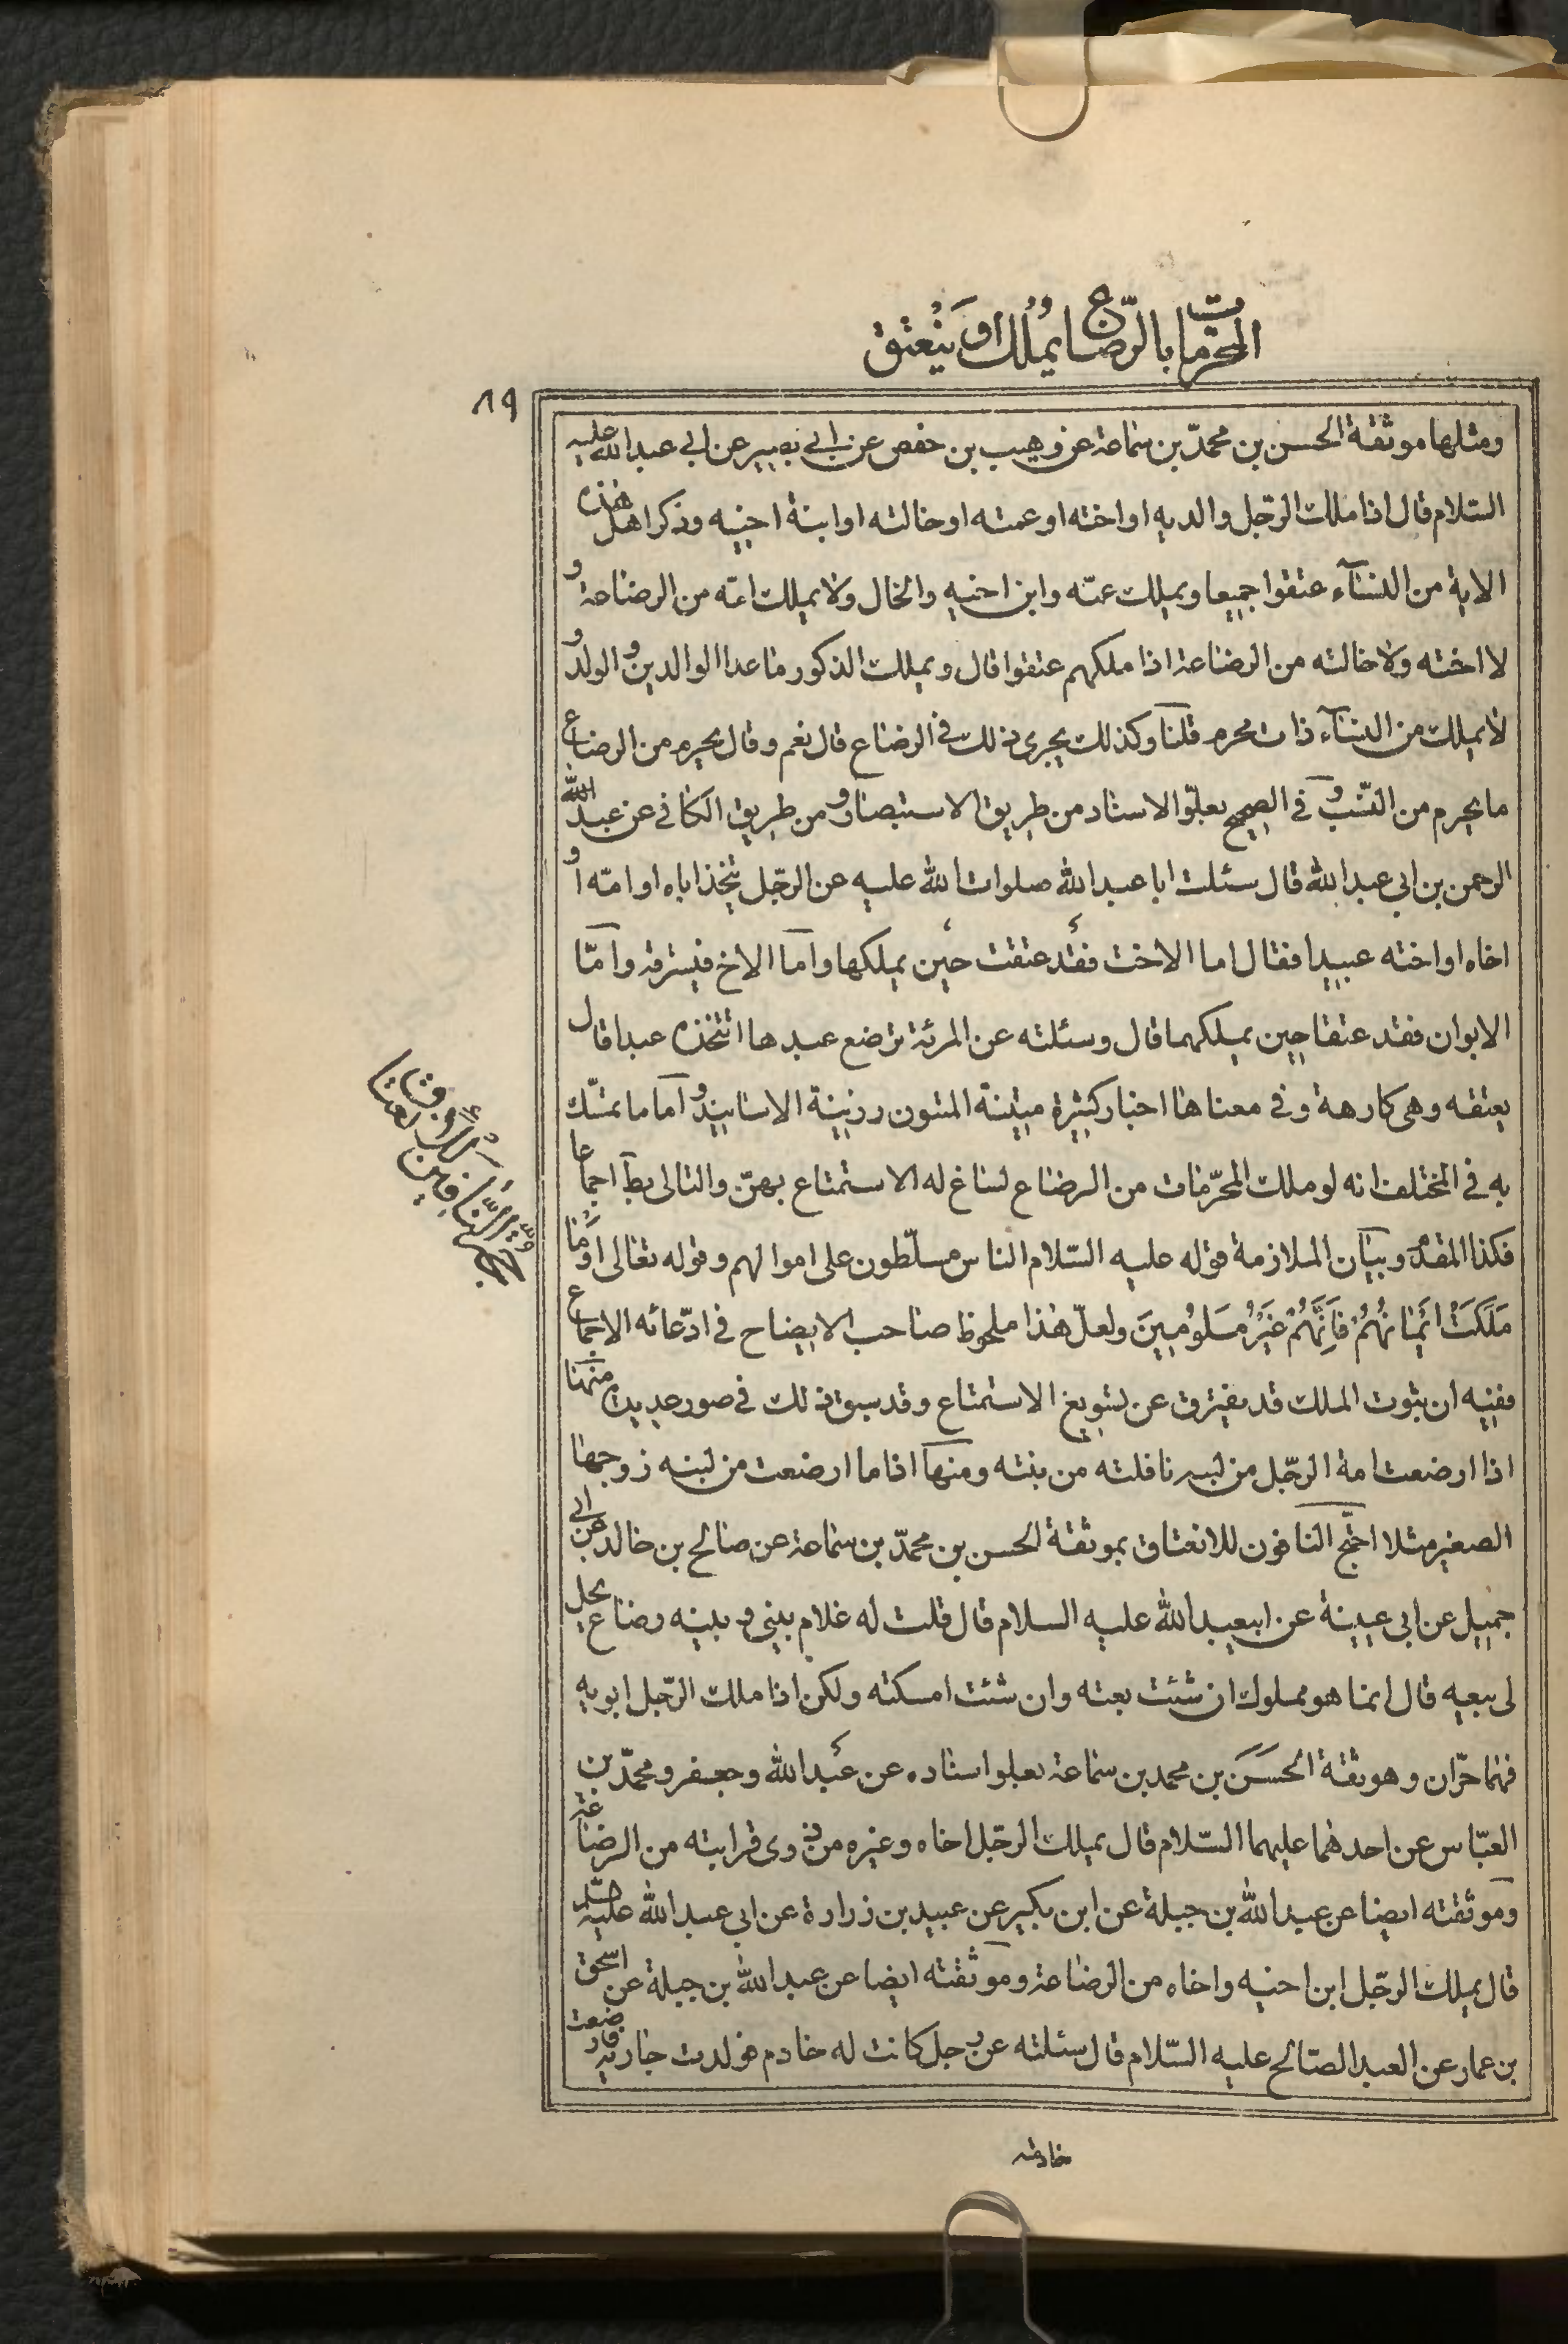 المحرمات بالرّضاع يُملك او يَنْعتق
٨٩
ومثلها موثّقة الحسن بن محمّد بن سماعة عن وهيب بن حفص عن ابي بصير عن ابي عبد الله عليه
السّلام قال اذا ملك الرّجل والديه او اخته او عمته او خالته او ابنة اخيه وذكر اهل هذه
الاية من النسآء عتقوا جميعا ويملك عمّه وابن اخيه والخال ولا يملك امّه من الرضاعة و
لا اخته ولا خالته من الرضاعة اذا ملكهم عتقوا قال ويملك الذكور ما عدا الوالدين والولد و
لا يملك من النسآء ذات محرم قلنا وكذلك يجرى ذلك في الرضاع قال نعم وقال يحرم من الرضاع
ما يحرم من النّسب و في الصحيح بعلوّ الاسناد من طريق الاستبصار و من طريق الكافي عن عبد الله
الرحمن بن ابي عبد الله قال سئلت ابا عبد الله صلوات الله عليه عن الرجّل يتّخذ اباه او امّه او
اخاه او اخته عبيدا فقال اما الاخت فقد عتقت حين يملكها واما الاخ فيسترقه وامّا
الابوان فقد عتقا حين يملكهما قال وسئلته عن المرئة ترضع عبدها اتتخذه عبدا قال
يعتقه وهى كارهة وفي معناها اخبار كثيرة متينة المتون رزينة الاسانيد و اما ما تمسّك
به في المختلف انه لو ملك المحرّمات من الرضاع لساغ له الاستمتاع بهنّ والتالى بط اجماعا
فكذا المقدّم و بيان الملازمة قوله عليه السّلام الناس مسلّطون على اموالهم وقوله تعالى اوما
مَلَكَتْ ايْمانُهُمْ فَاِنَّهُمْ غَيْرُ مَلُومينَ ولعلّ هذا ملحوظ صاحب الايضاح في ادّعائه الاجماع
ففيه ان ثبوت الملك قد يفترق عن تسويغ الاستمتاع وقد سبق ذلك في صور عديدة منها
اذا ارضعت امة الرجّل من لبنه نافلته من بنته ومنها اذا ما ارضعت من لبنه زوجها
الصغير مثلا احتجّ النافون للانعتاق بموثقة الحسن بن محمّد بن سماعة عن صالح بن خالد عن ابي
جميل عن ابي عيينة عن ابيعبد الله عليه السلام قال قلت له غلام بيني و بينه رضاع يحل
لى بيعه قال انما هو مملوك ان شئت بعته وان شئت امسكته ولكن اذا ملك الرّجل ابويه
فهما حرّان و موثقة الحَسَن بن محمد بن سماعة بعلو اسناده عن عبد الله وجعفر و محمّد بن
العبّاس عن احدهما عليهما السّلام قال يملك الرجّل اخاه وغيره من ذوى قرابته من الرضاعة
وموثقته ايضا عن عبد الله بن جبلة عن ابن بكير عن عبيد بن زرارة عن ابي عبد الله عليه السّلم
قال يملك الرجّل ابن اخيه واخاه من الرضاعة وموثقته ايضا عن عبد الله بن جبلة عن اسحق
بن عمار عن العبد الصّالح عليه السّلام قال سئلته عن رجل كانت له خادم فولدت جارية فارضعت
خادمه